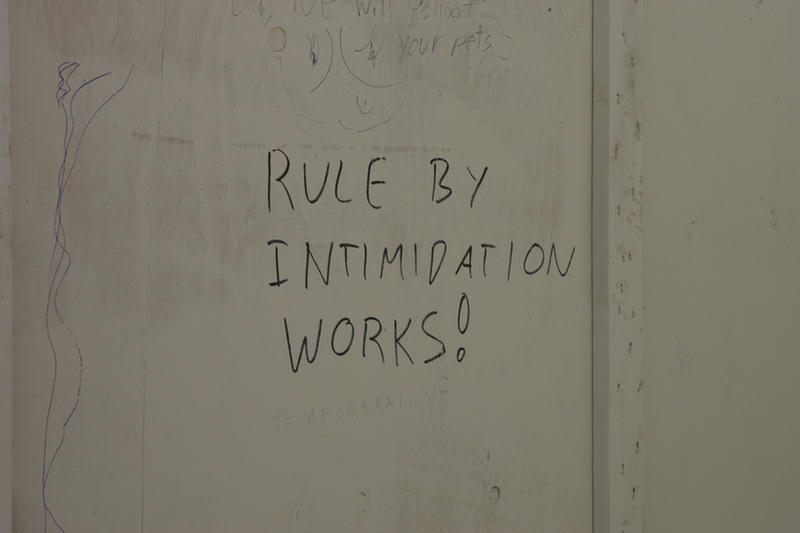 we will shoot
your pets
RULE BY
INTIMIDATION
WORKS!
TEMPORARAILY